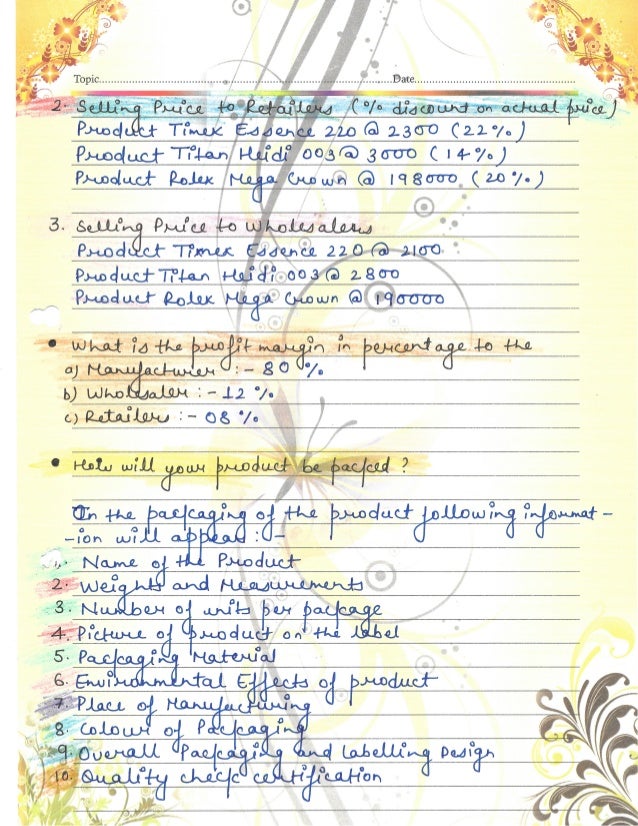 Topic.................................................. Date..................................................
2. Selling Price to Retailers (% discount on actual price)
Product Timex Essence 220 @ 2300 (22%)
Product Titan Heidi 003 @ 3000 (14%)
Product Rolex Mega Crown @ 198000 (20%)
3. Selling Price to Wholesalers
Product Timex Essence 220 @ 2100
Product Titan Heidi 003 @ 2800
Product Rolex Mega Crown @ 190000
• What is the profit margin in percentage to the
a) Manufacturer :- 80 %
b) Wholesaler :- 12 %
c) Retailers :- 08 %
• How will your product be packed ?
In the packaging of the product following informat-
-ion will appear :-
1. Name of the Product
2. Weights and Measurements
3. Number of units per package
4. Picture of product on the label
5. Packaging Material
6. Environmental Effects of product
7. Place of Manufacturing
8. Colour of Packaging
9. Overall Packaging and Labelling Design
10. Quality check certification